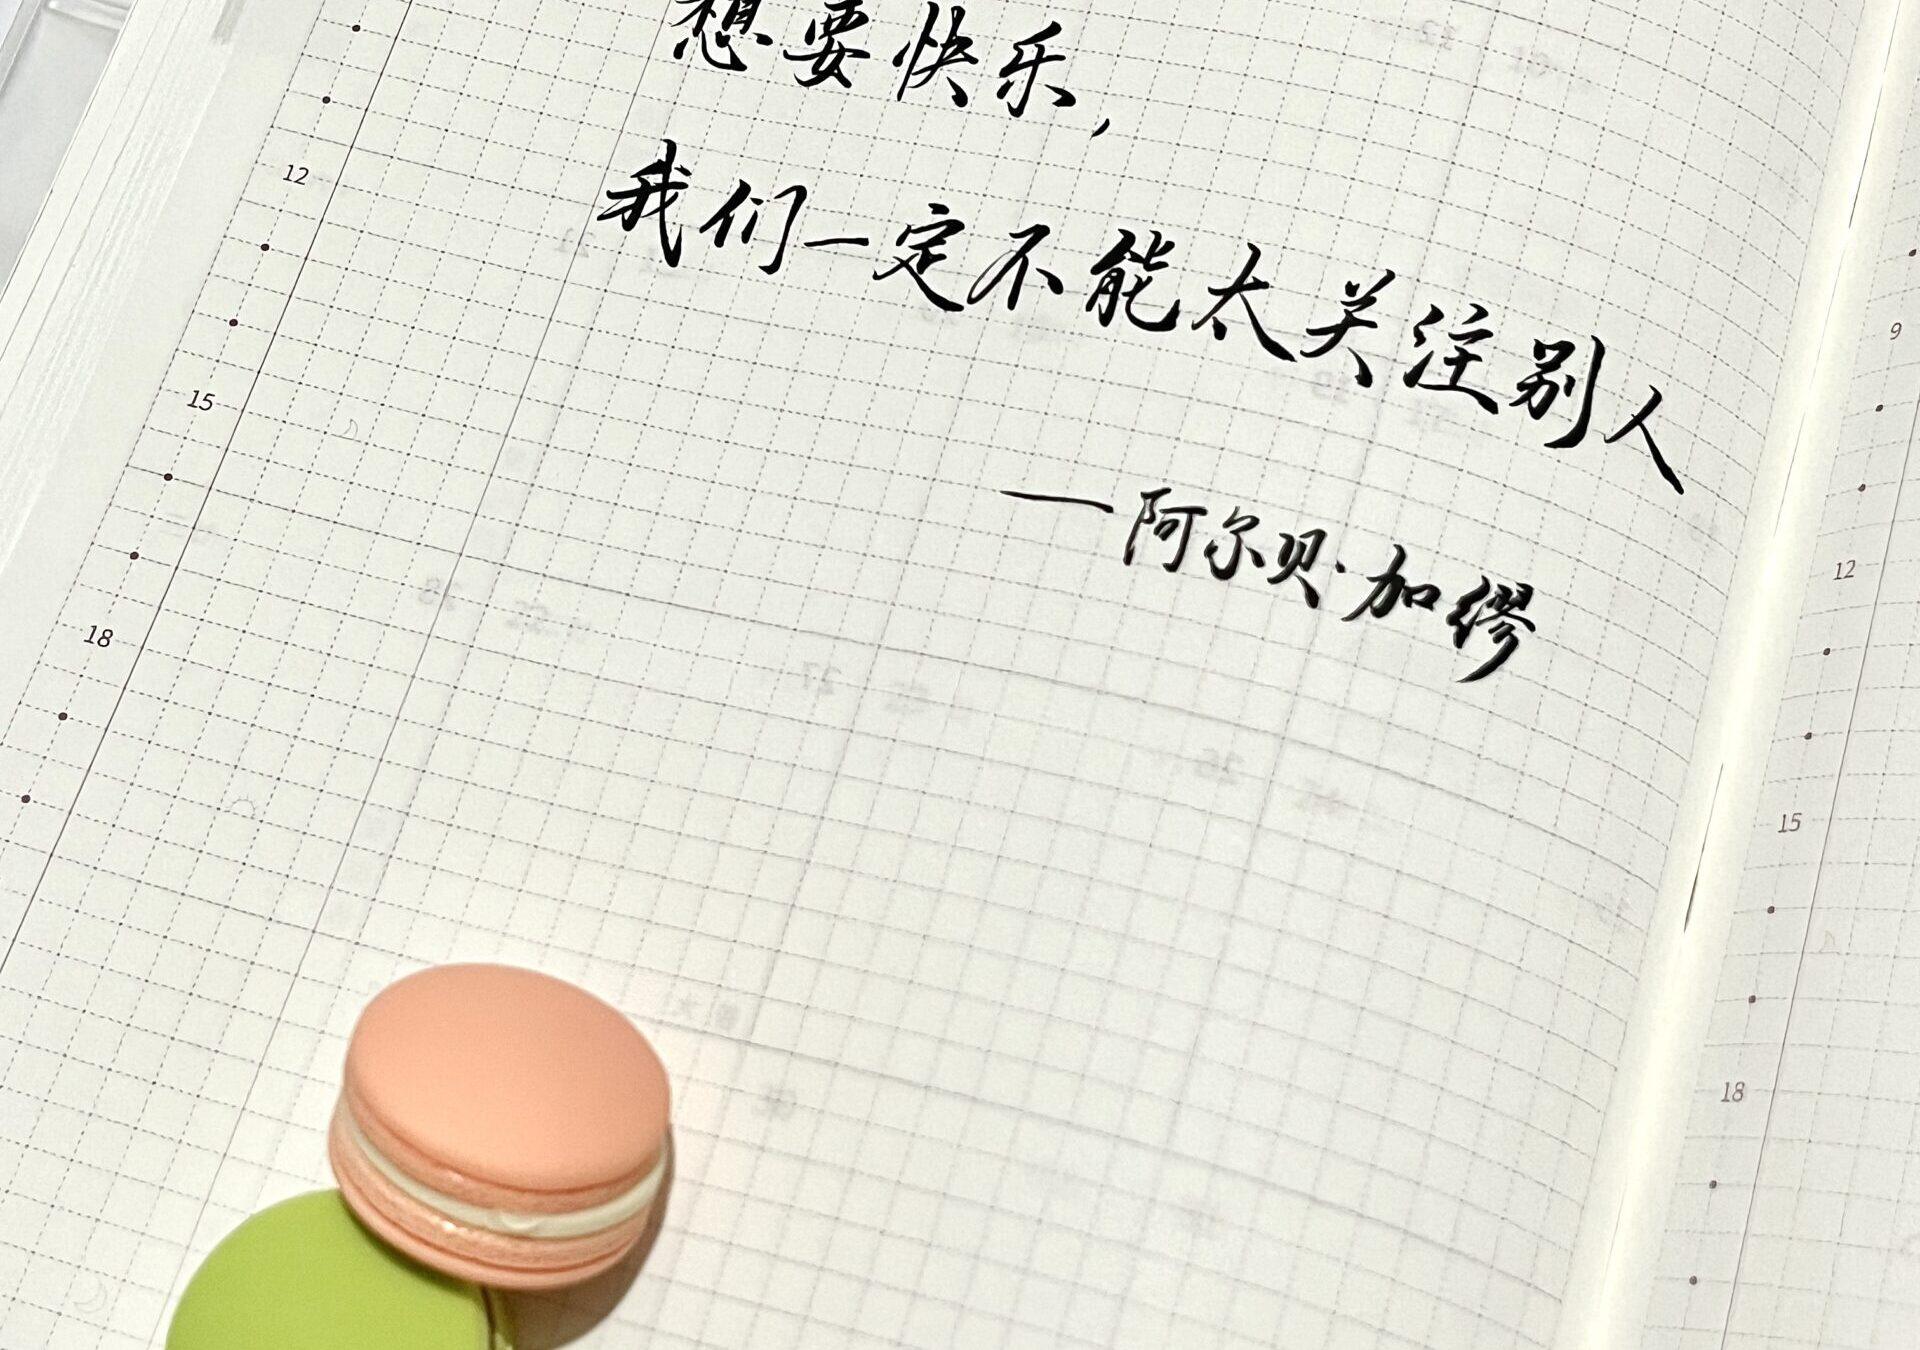 想要快乐，
我们一定不能太关注别人
—阿尔贝·加缪
12
15
18
9
12
15
18